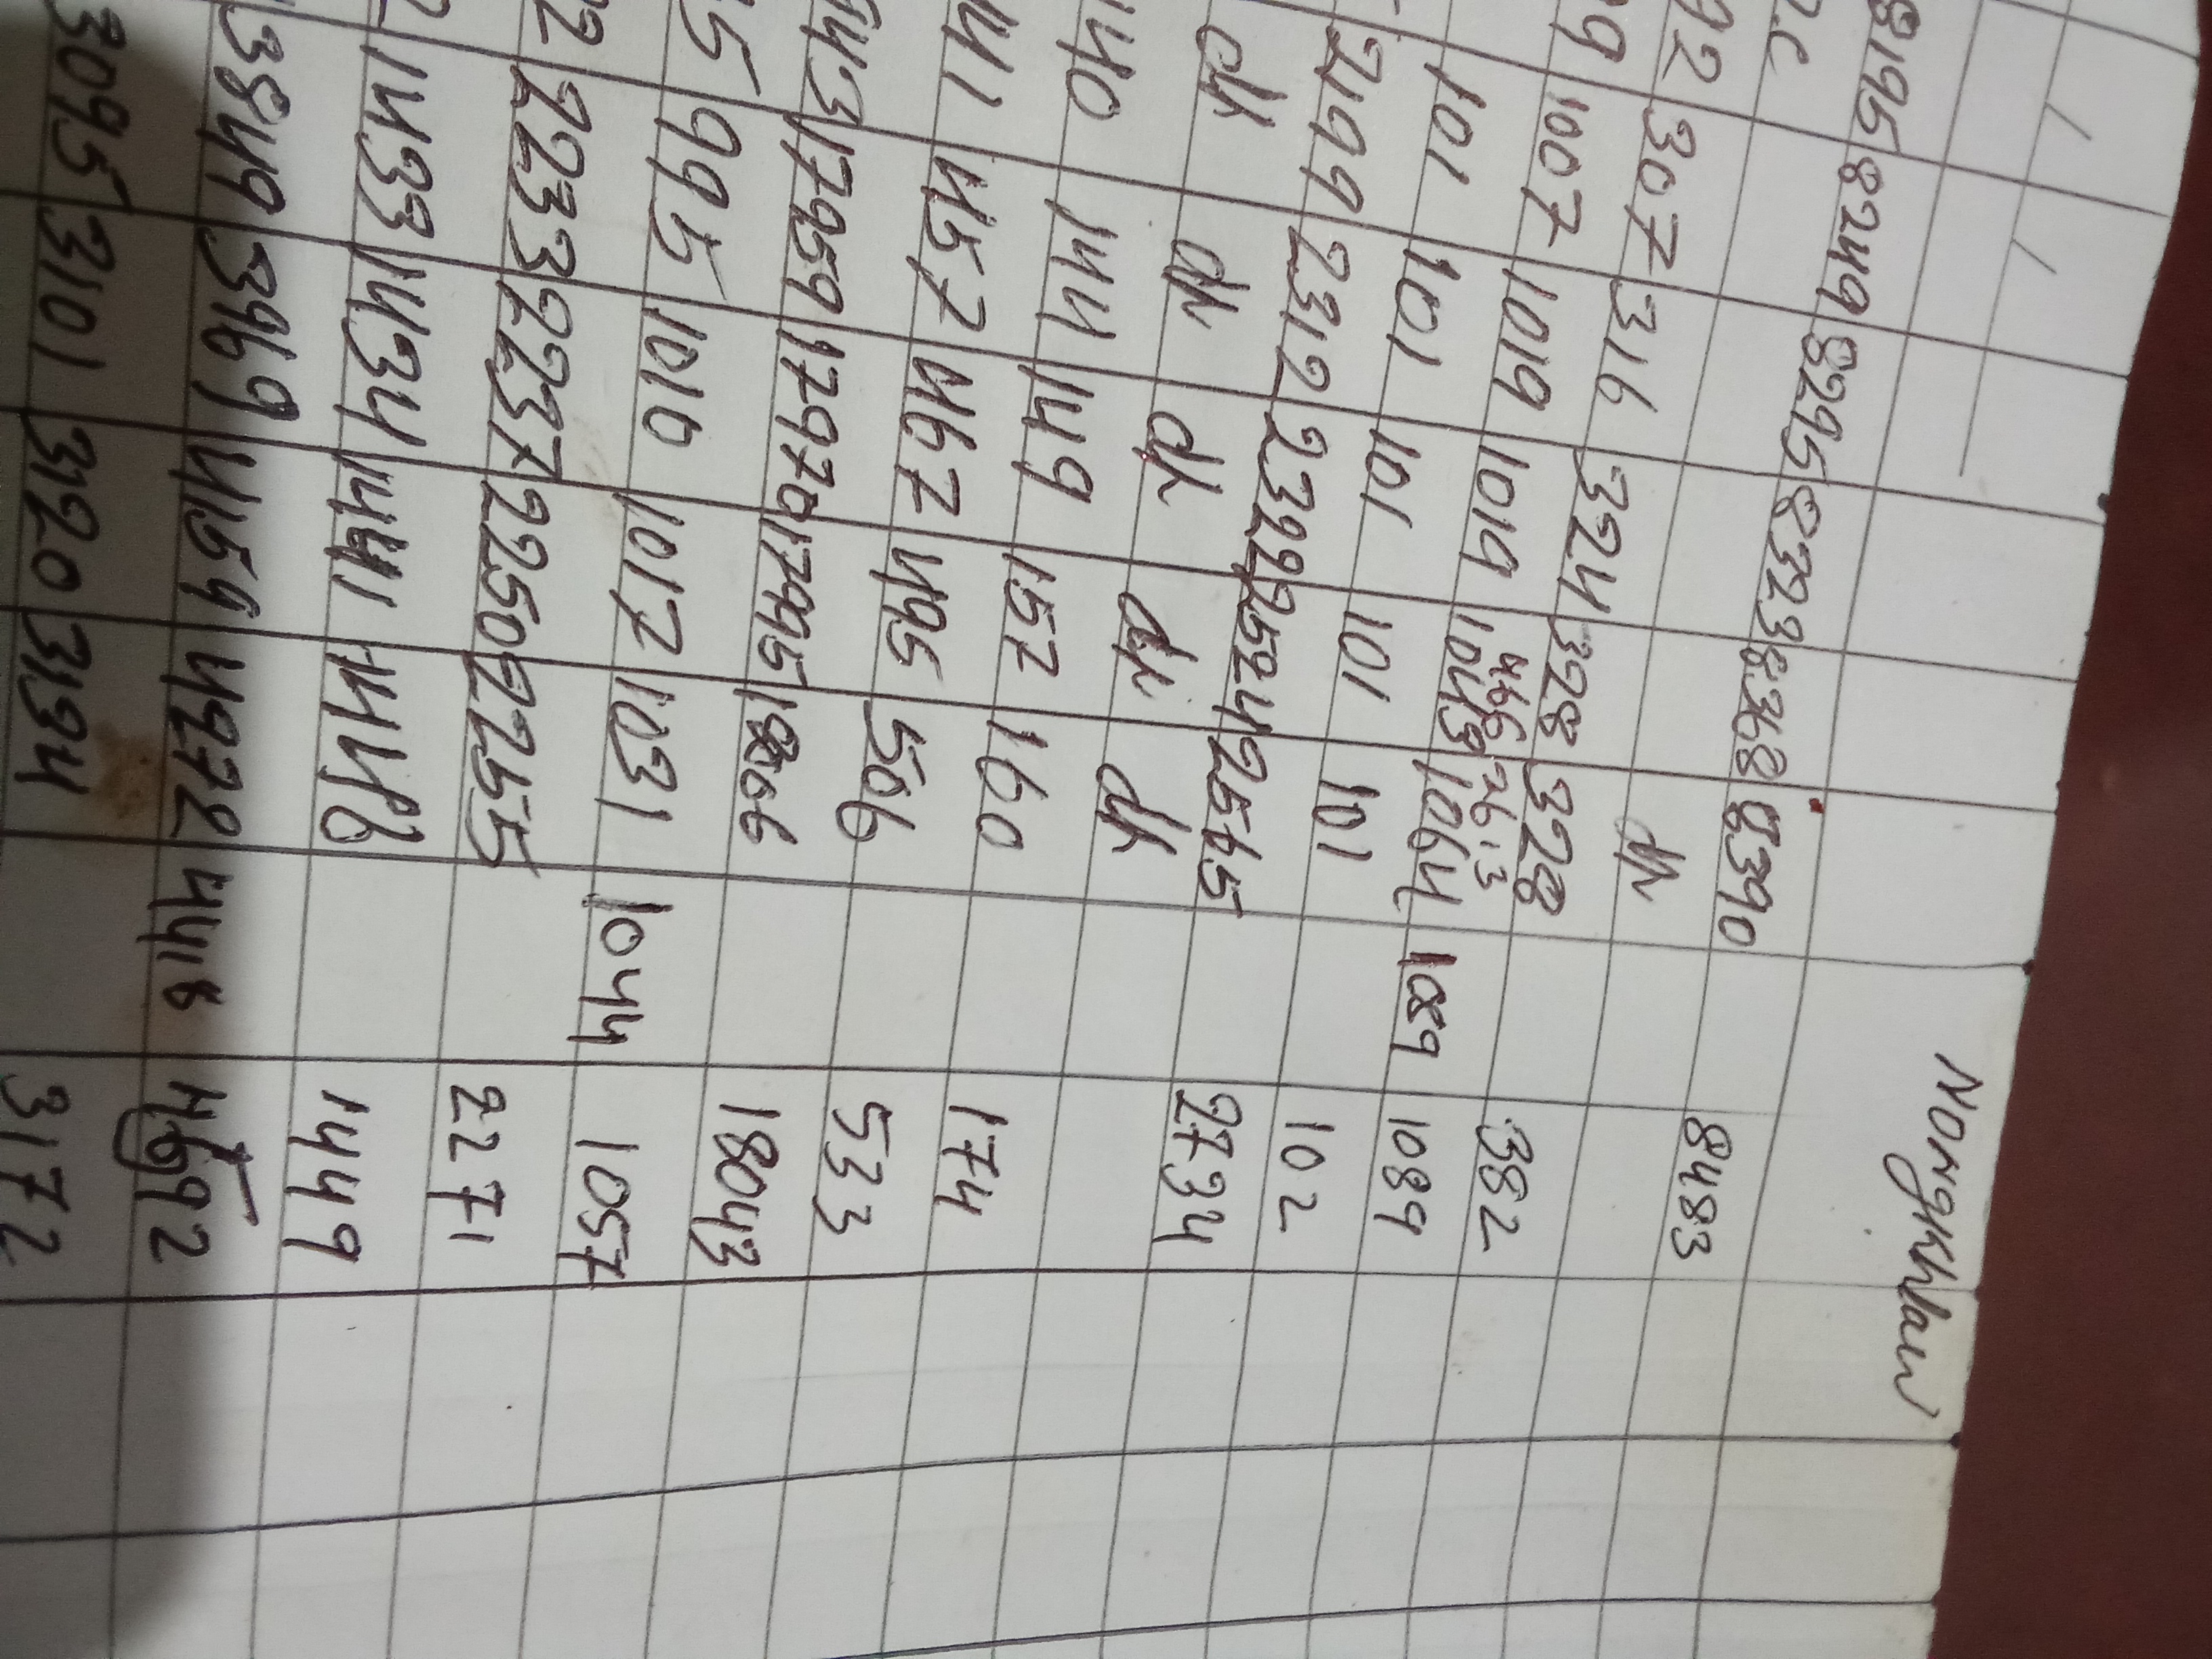 Nongkhlaw
8195 8249 8295 8323 8368 8390 8483
307 316 324 328 328 382
1007 1019 1019 1043 1064 1089 1089
101 101 101 101 101 102
2199 2312 2392 2524 2565 2734
dk dk dk dk dk
140 144 149 157 160 174
457 467 495 506 533
17959 17970 17995 18043
995 1010 1017 1031 1044 1057
2233 2237 2250 2255 2271
1433 1434 1441 1449
3849 3969 4159 4272 4418 4692
3095 3101 3120 3134 3172